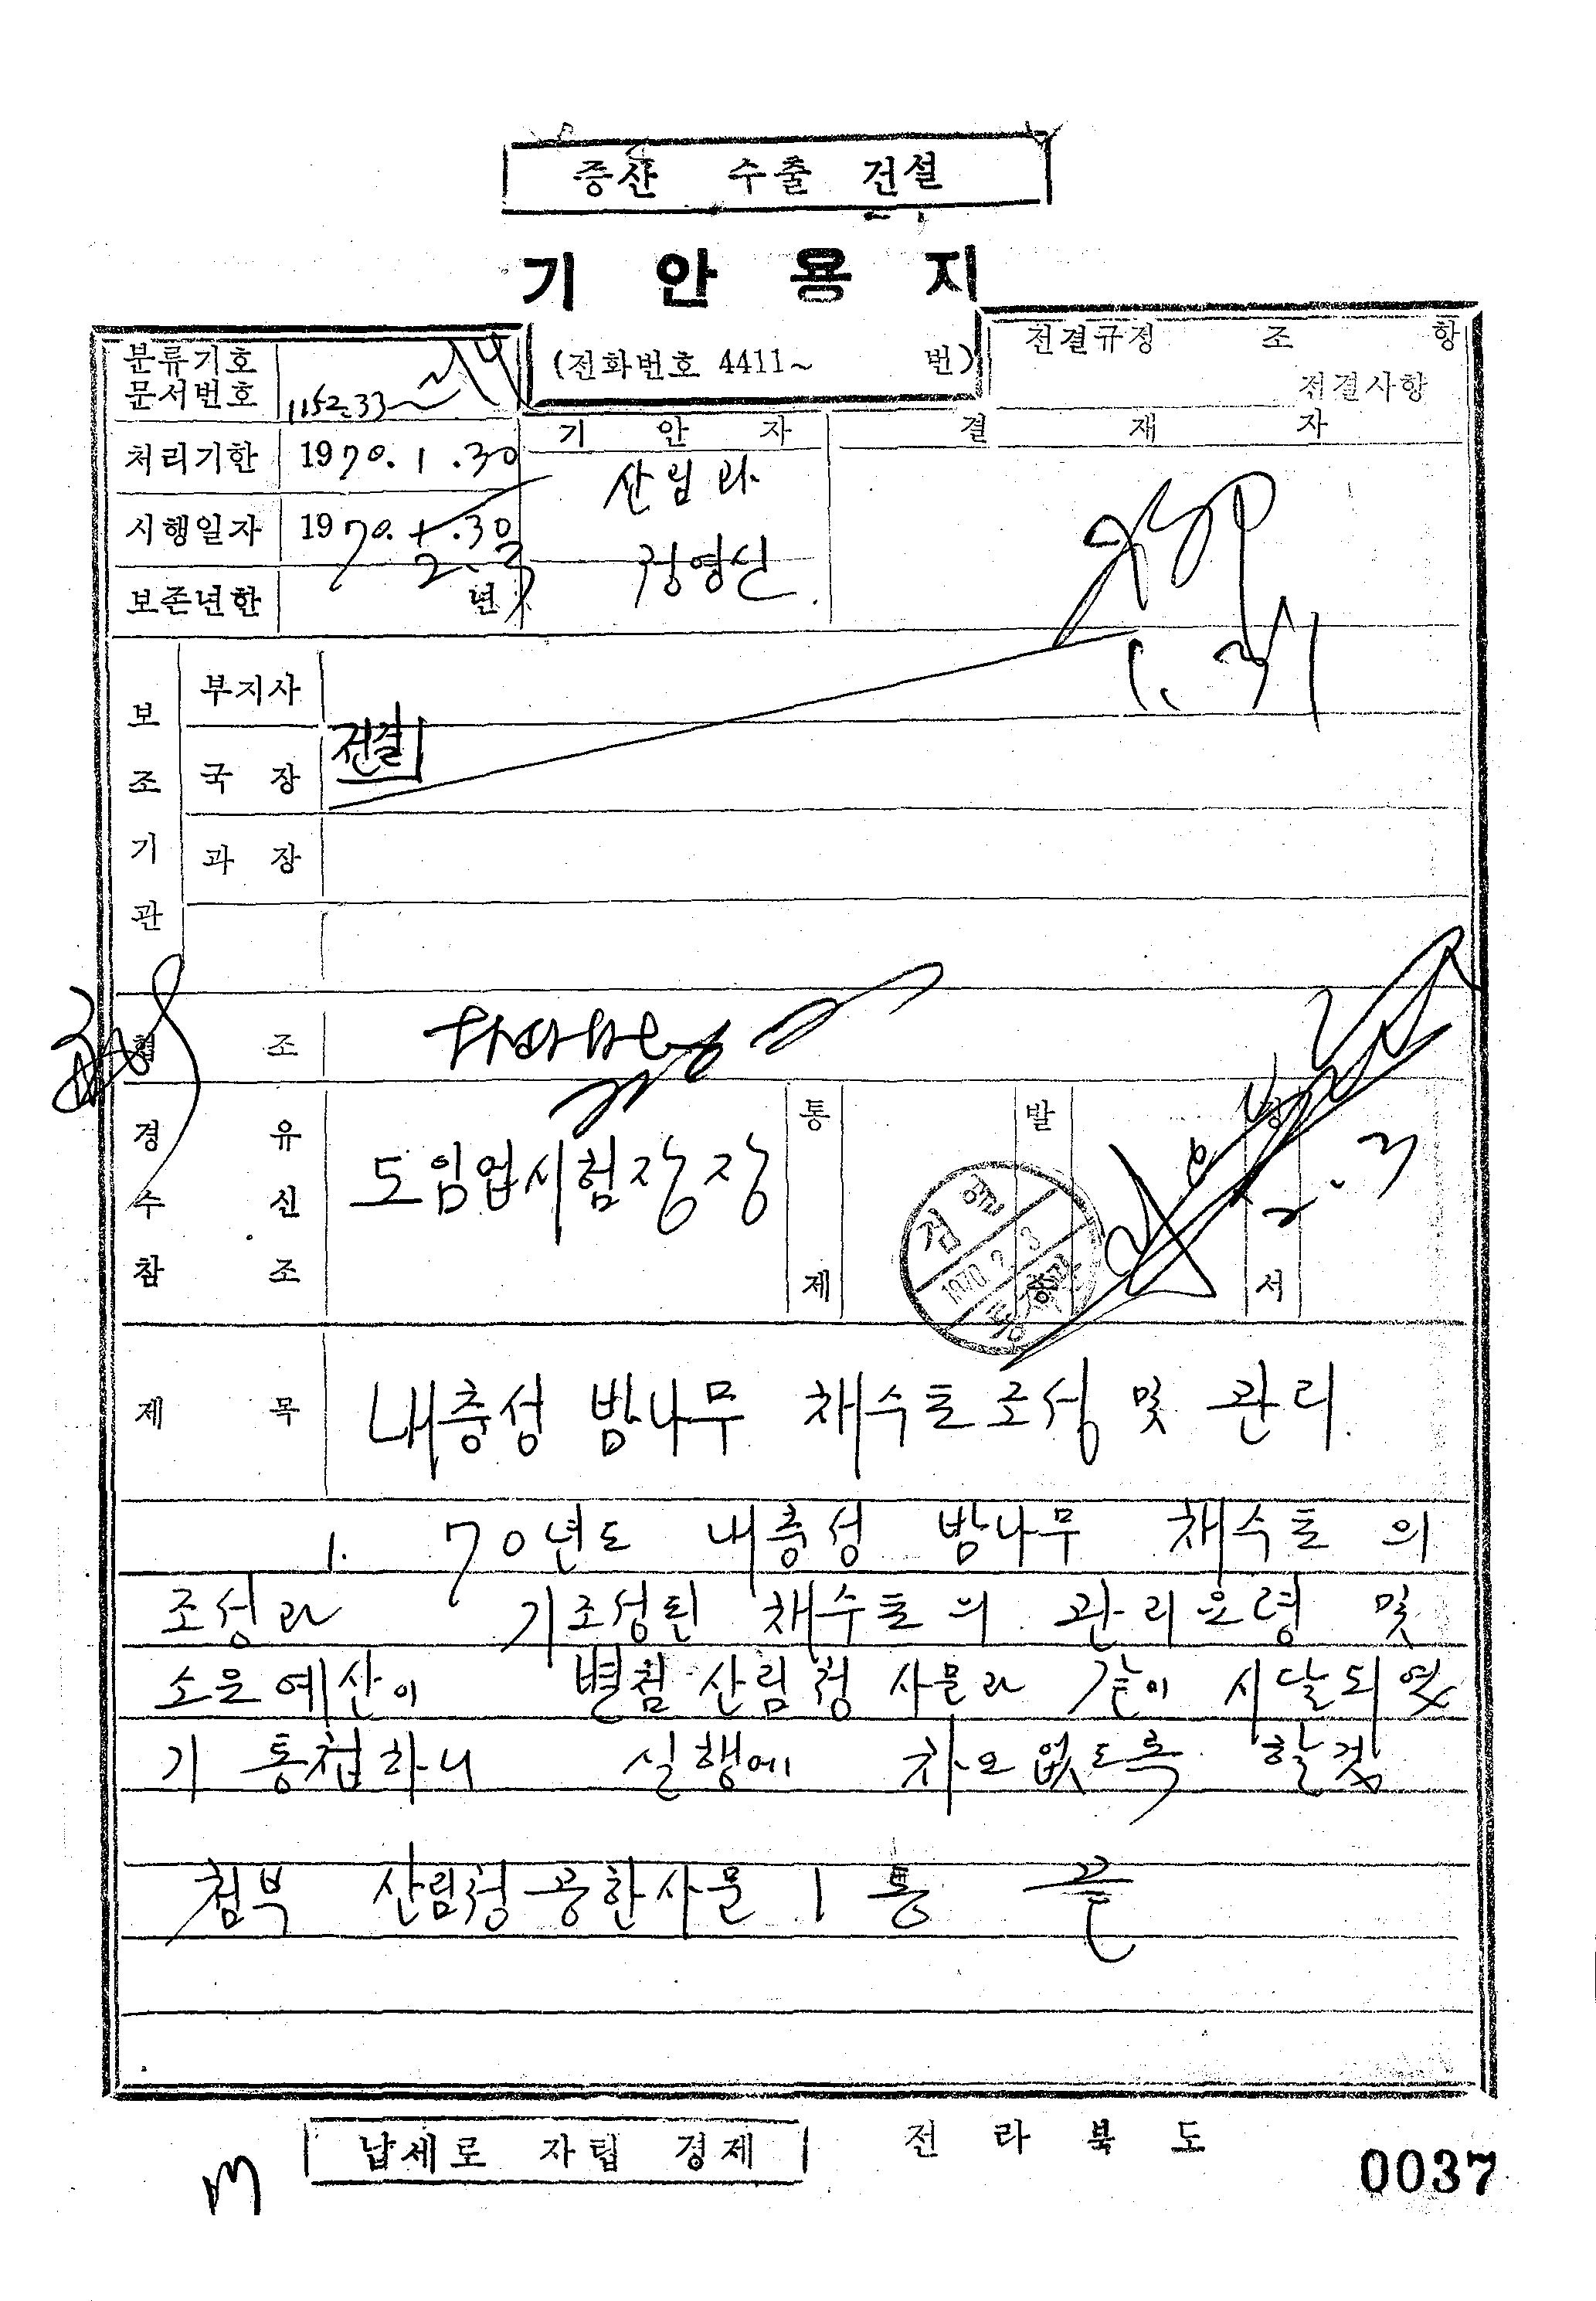 증산 수출 건설
기 안 용 지
분류기호
문서번호 1152.33-
(전화번호 4411~ 번)
전결규정 조 항
전결사항
처리기한 1970.1.30
기 안 자
결 재 자
산림과
시행일자 1970.1.30
2.3
정영신
보존년한 년
1.31
보조기관
부지사
국 장 전결
과 장
협 조
경 유
수 신 도임업시험장장
참 조
통 제
발 송
검열
1970.2.3
통제
정 서
2.3
제 목 내충성 밤나무 채수포조성 및 관리.
1. 70년도 내충성 밤나무 채수포의
조성과 기조성된 채수포의 관리요령 및
소요예산이 별첨 산림청 사문과 같이 시달되였
기 통첩하니 실행에 차오없도록 할것
첨부 산림청공한사문 1통 끝
납세로 자립 경제
전 라 북 도
0037